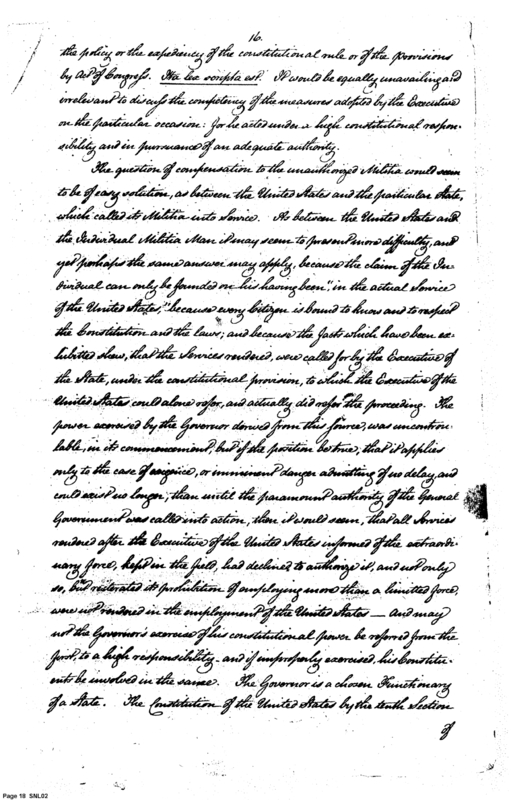 16.
the policy or the expediency of the constitutional rule or of the provisions
by Act of Congress. Ita lex scripta est. It would be equally unavailing and
irrelevant to discuss the competency of the measures adopted by the Executive
on the particular occasion: for he acted under a high constitutional respon-
sibility and in pursuance of an adequate authority.
The question of compensation to the unauthorized Militia would seem
to be of easy solution, as between the United States and the particular State,
which called its Militia into Service. As between the United States and
the Individual Militia Man it may seem to present more difficulty, and
yet perhaps the same answer may apply, because the claim of the In-
dividual can only be founded on his having been "in the actual Service
of the United States," because every Citizen is bound to know and to respect
the Constitution and the laws; and because the facts which have been ex-
hibited shew, that the Services rendered, were called for by the Executive of
the State, under the constitutional provision, to which the Executive of the
United States could alone refer, and actually did refer the proceeding. The
power exercised by the Governor derived from this source, was uncontrou-
lable, in its commencement, but if the position be true, that it applies
only to the case of exigence, or imminent danger admitting of no delay, and
could exist no longer, than until the paramount authority of the General
Government was called into action, then it would seem, that all Services
rendered after the Executive of the United States informed of the extraordi-
nary force, kept in the field, had declined to authorize it, and not only
so, but reiterated its prohibition of employing more than a limited force,
were not rendered in the employment of the United States — And may
not the Governor's exercise of his constitutional power be referred from the
first, to a high responsibility and if improperly exercised, his Constitu-
ents be involved in the same. The Governor is a chosen Functionary
of a State. The Constitution of the United States by the tenth Section
of
Page 18 SNL02